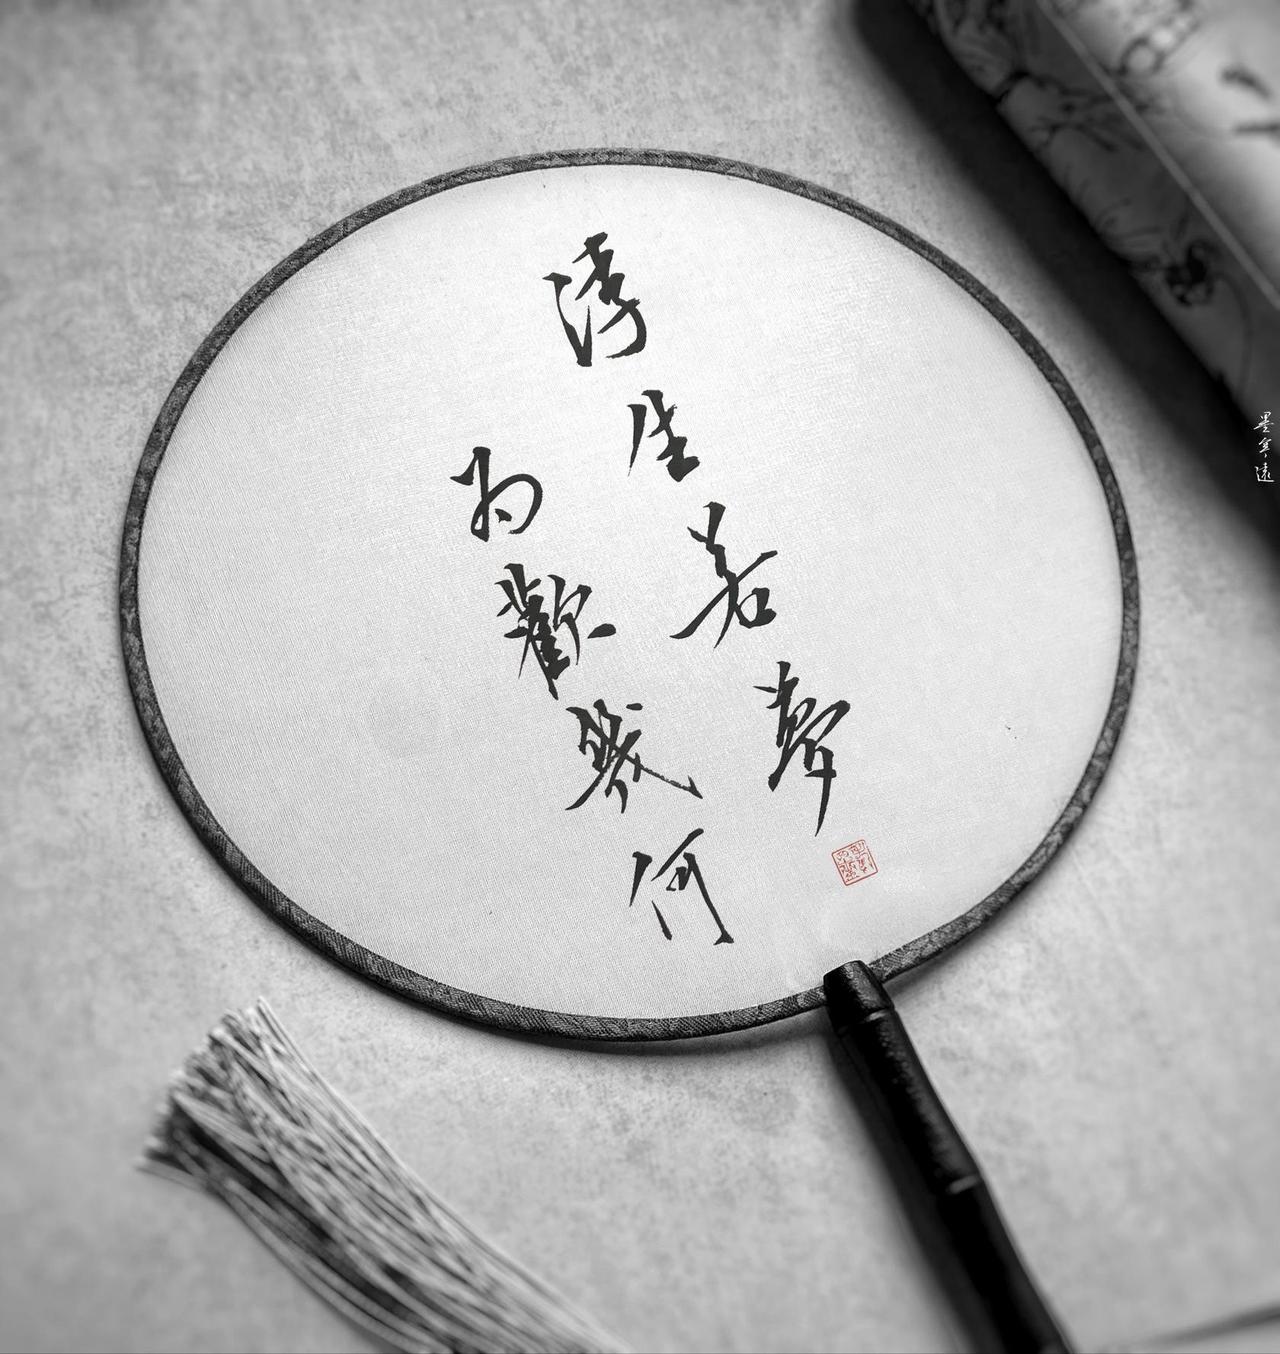 浮生若夢
为歡幾何
墨寧遠